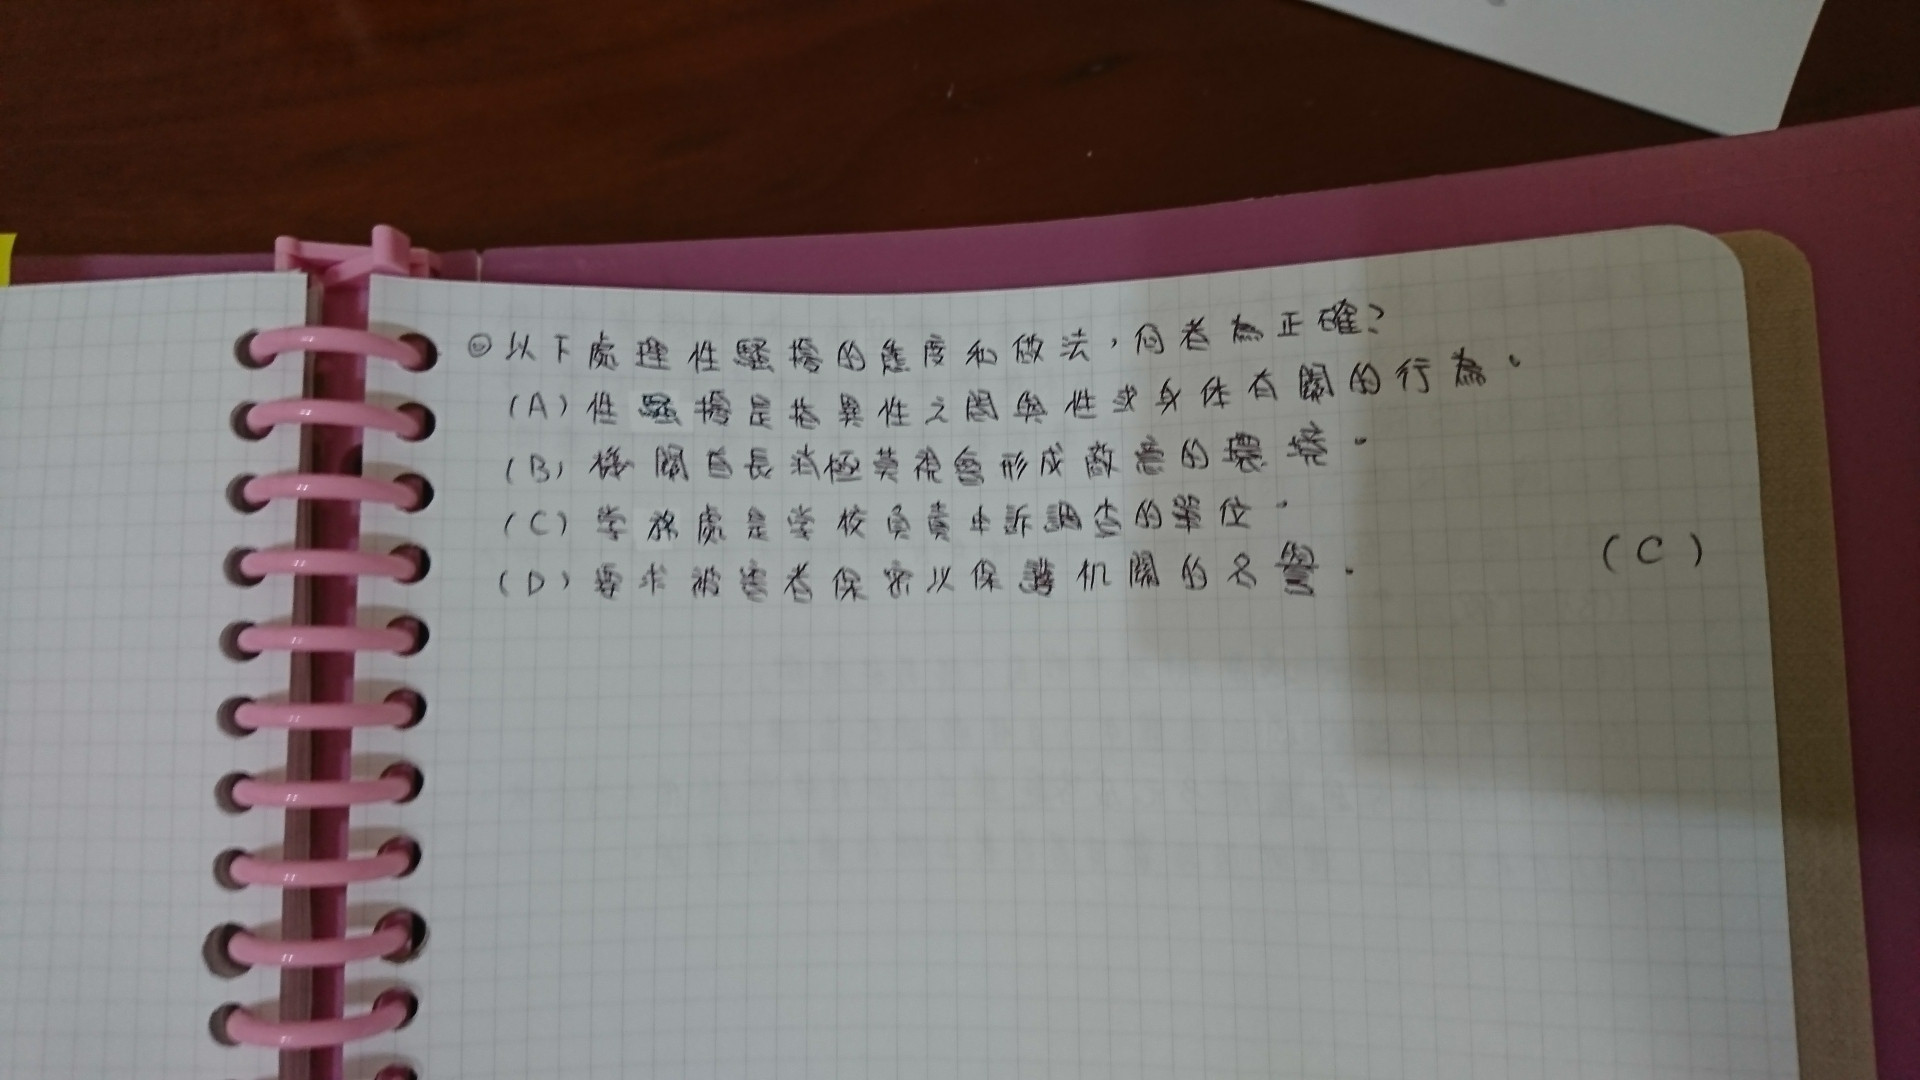 ◎以下處理性騷擾的態度和做法，何者為正確？
(A) 性騷擾是指異性之間與性或身体有關的行為。
(B) 機關首長消極莫視會形成敵意的環境。
(C) 学務處是学校負責申訴調查的單位。
(D) 要求被害者保密以保護机關的名譽。
(C)